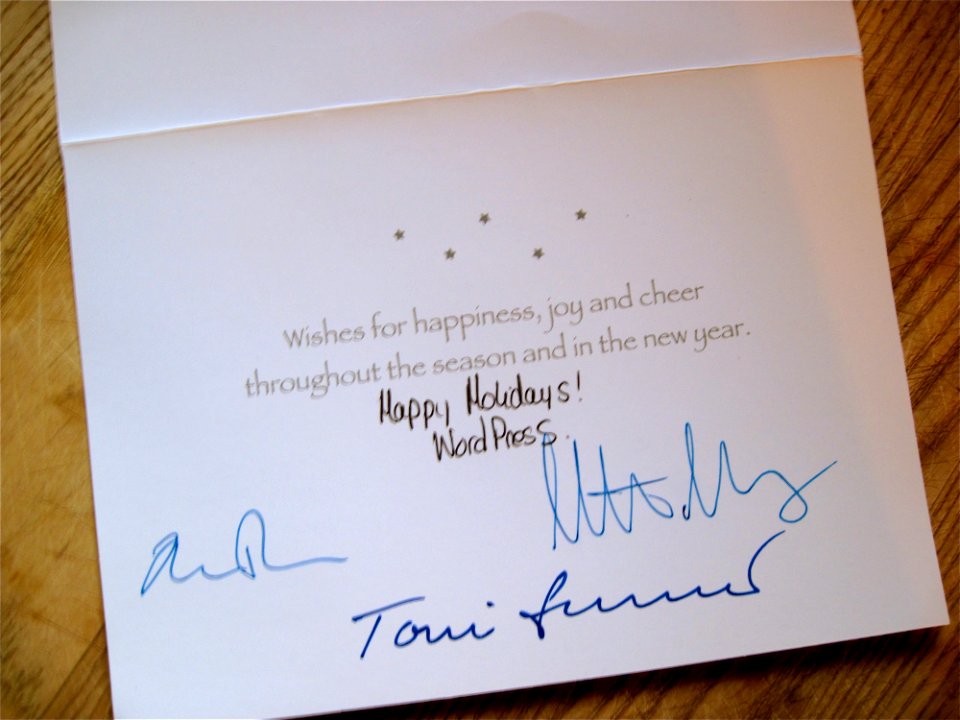 Wishes for happiness, joy and cheer
throughout the season and in the new year.
Happy Holidays!
WordPress.
Toni